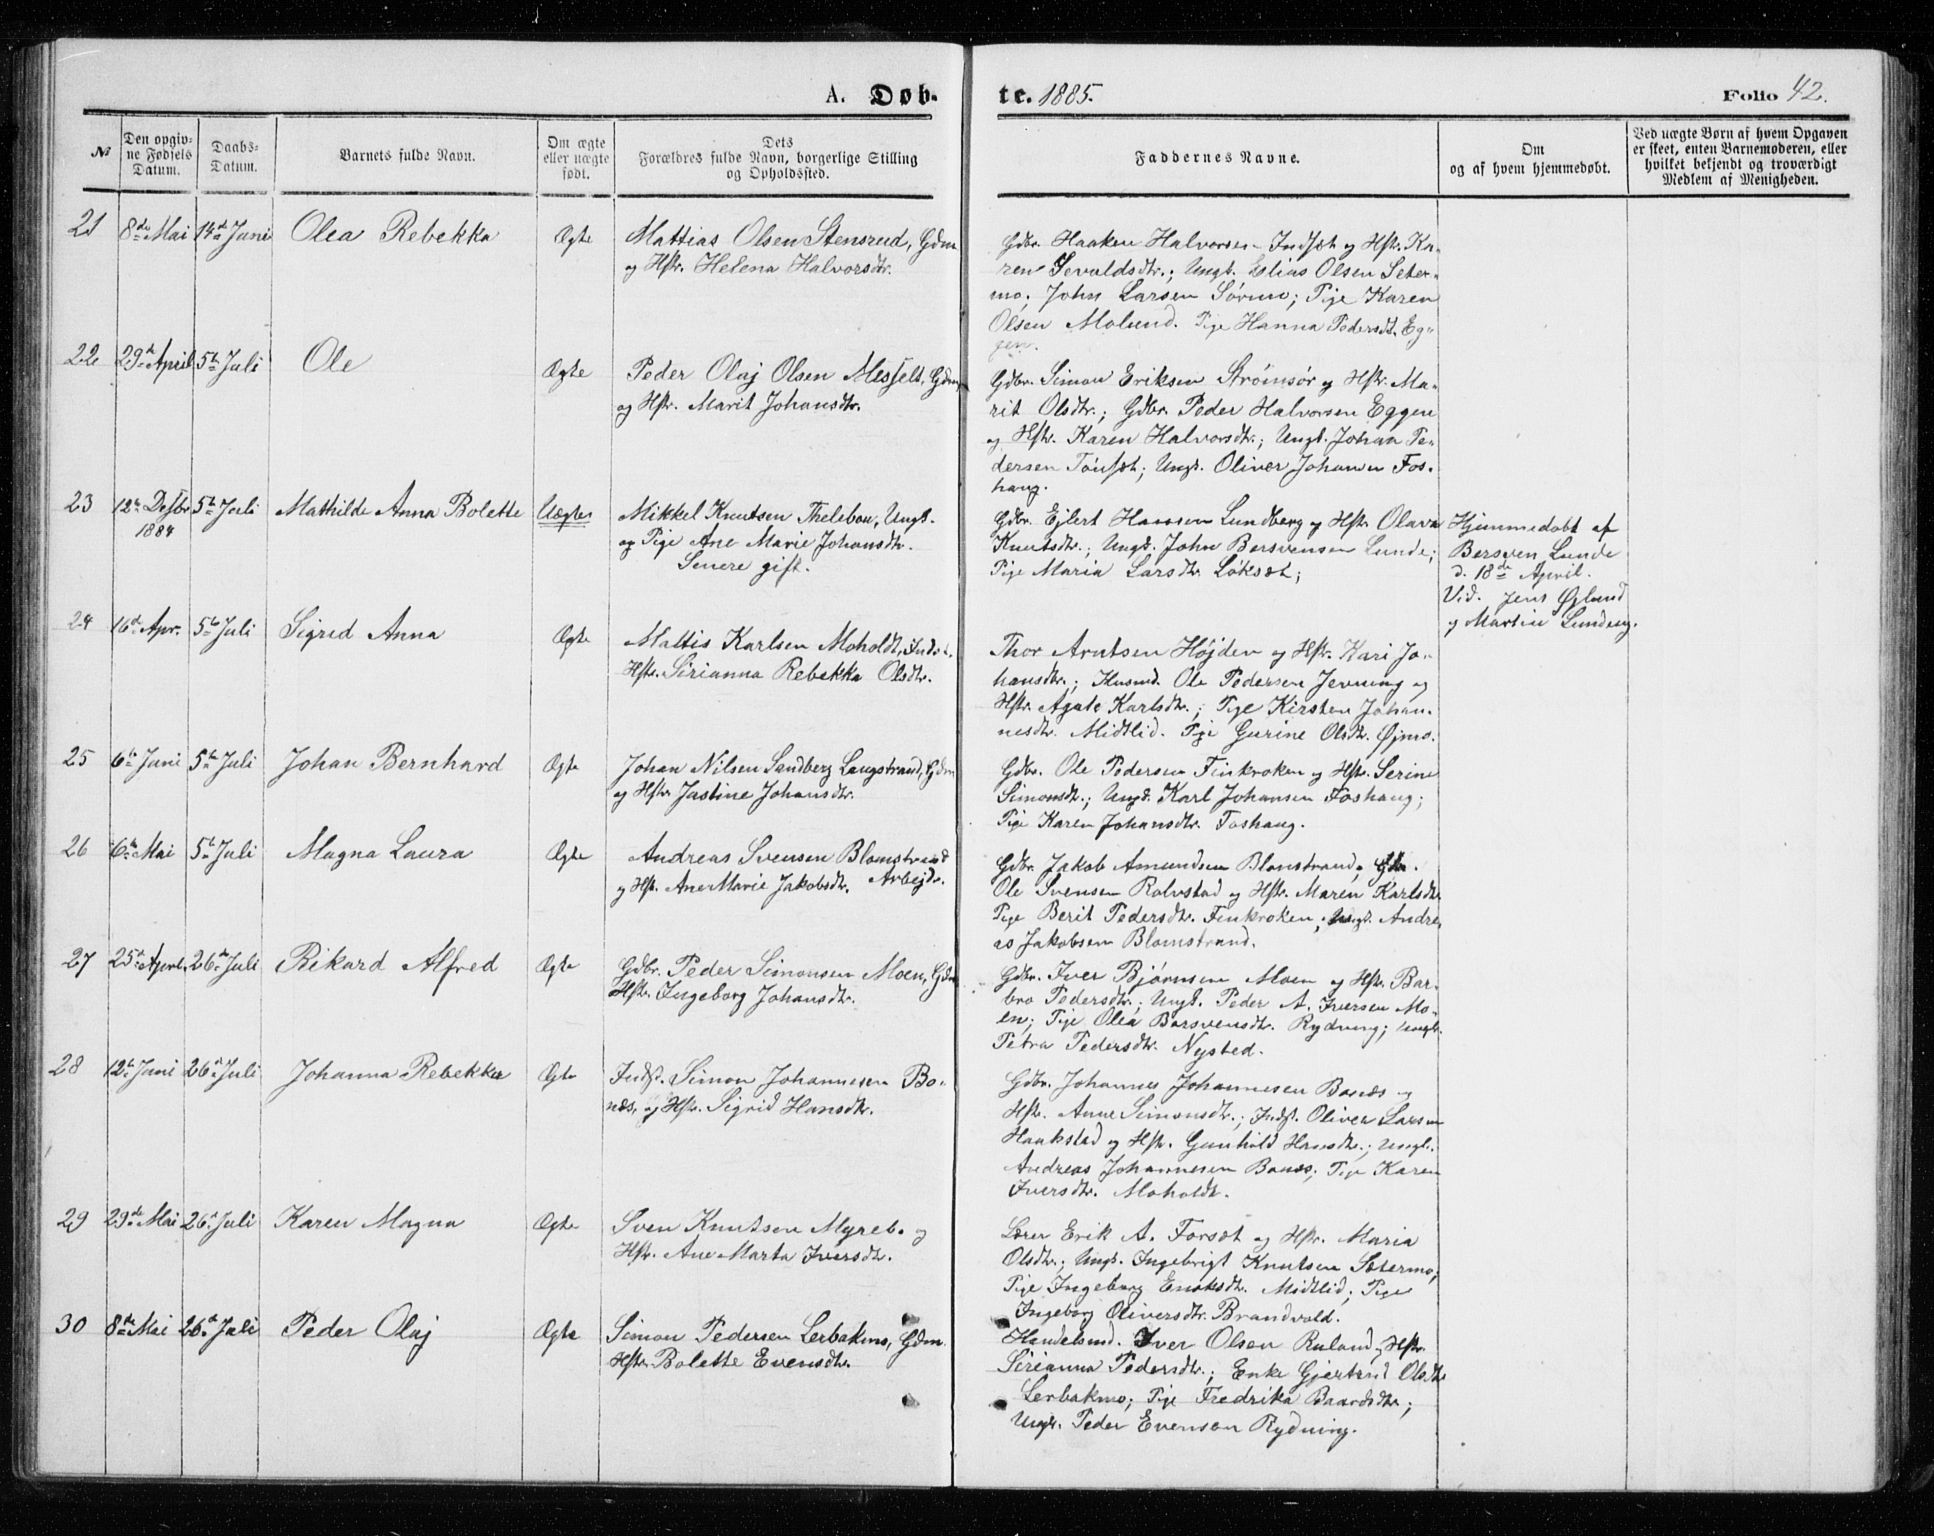 A. Døb-
te. 1885.
Folio 42.
№
Den opgiv-
ne Fødsels
Datum.
Daabs-
Datum.
Barnets fulde Navn.
Om ægte
eller uægte
født.
Dets
Forældres fulde Navn, borgerlige Stilling
og Opholdssted.
Faddernes Navne.
Om
og af hvem hjemmedøbt.
Ved uægte Børn af hvem Opgaven
er skeet, enten Barnemoderen, eller
hvilket bekjendt og troværdigt
Medlem af Menigheden.
21 8de Mai 14de Juni Olea Rebekka Ægte
Mattias Olsen Stensrud, Gdm
og Hstr. Helena Halvorsdtr.
Gdbr. Haaken Halvorsen Indset og Hstr. Ka-
ren Sevaldsdtr.; Ungk. Elias Olsen Seter-
mo; John Larsen Sørmo; Pige Karen
Olsen Molund. Pige Hanna Pedersdt. Eg-
gen.
22 29de April 5te Juli Ole Ægte
Peder Olaj Olsen Mesfeld, Gdm,
og Hstr. Marit Johansdtr.
Gdbr. Simon Eriksen Strømsør og Hstr. Ma-
rit Olsdtr.; Gdbr. Peder Halvorsen Eggen
og Hstr. Karen Halvorsdtr.; Ungk. Johan Pe-
dersen Tønset; Ungk. Oliver Johansen Fos-
haug.
23 12te Desbr 1884 5te Juli Mathilde Anna Bolette Uægte
Mikkel Knutsen Thelebon, Ungk.
og Pige Ane Marie Johansdtr.
Senere gift.
Gdbr. Ejlert Hansen Lundberg og Hstr. Olava
Knutsdtr.; Ungk. John Bersvensen Lunde;
Pige Maria Larsdtr. Løkset;
Hjemmedøbt af
Bersven Lunde
d. 18de April.
Vid. Jens Øgland
og Martin Lundeng.
24 16de Apr. 5te Juli Sigrid Anna Ægte
Mattis Karlsen Moholdt, Indst.
Hstr. Sirianna Rebekka Olsdtr.
Thor Arntsen Højden og Hstr. Kari Jo-
hansdtr.; Husmd. Ole Pedersen Jevning og
Hstr. Agate Karlsdtr.; Pige Kirsten Johan-
nesdtr. Midtlid. Pige Gurine Olsdtr. Øjmo.
25 6te Juni 5te Juli Johan Bernhard Ægte
Johan Nilsen Sandberg Langstrand, Gdm
og Hstr. Jastine Johansdtr.
Gdbr. Ole Pedersen Finkroken og Hstr. Serine
Simonsdtr.; Ungk. Karl Johansen Foshaug;
Pige Karen Johansdtr. Foshaug.
26 6te Mai 5te Juli Magna Laura Ægte
Andreas Svensen Blomstrand
og Hstr. Ane Marie Jakobsdtr. Arbejdr.
Gdbr. Jakob Amundsen Blomstrand, Gdbr.
Ole Svensen Rolvstad og Hstr. Maren Karlsdtr.
Pige Berit Pedersdtr. Finkroken; Ungk. Andre-
as Jakobsen Blomstrand.
27 25de April 26de Juli Rikard Alfred Ægte
Gdbr. Peder Simonsen Moen, Gdm
Hstr. Ingeborg Johansdtr.
Gdbr. Iver Bjørnsen Moen og Hstr. Bar-
bro Pedersdtr.; Ungk. Peder A. Iversen Mo-
en; Pige Olea Bersvensdtr. Rydning; Ungk.
Petra Pedersdtr. Nysted.
28 12te Juni 26de Juli Johanna Rebekka Ægte
Indst. Simon Johannesen Bo-
næs, og Hstr. Sigrid Hansdtr.
Gdbr. Johannes Johannesen Bonæs og
Hstr. Anne Simonsdtr.; Indst. Oliver Larsen
Haakstad og Hstr. Gunhild Hansdtr.; Ungk.
Andreas Johannesen Bonæs; Pige Karen
Iversdtr. Moholdt.
29 29de Mai 26de Juli Karen Magna Ægte
Sven Knutsen Myreb. og
Hstr. Ane Marta Iversdtr.
Lærer Erik A. Forset og Hstr. Maria
Olsdtr.; Ungk. Ingebrigt Knutsen Setermo;
Pige Ingeborg Enoksdtr. Midtlid; Pige
Ingeborg Oliversdtr. Brandvold.
30 8de Mai 26de Juli Peder Olaj Ægte
Simon Pedersen Lerbakmo, Gdm
Hstr. Bolette Evensdtr.
Handelsmd. Iver Olsen Ruland, Hstr.
Sirianna Pedersdtr.; Enke Gjertrud Olsdtr
Lerbakmo; Pige Fredrika Baardsdtr.;
Ungk. Peder Evensen Rydning.